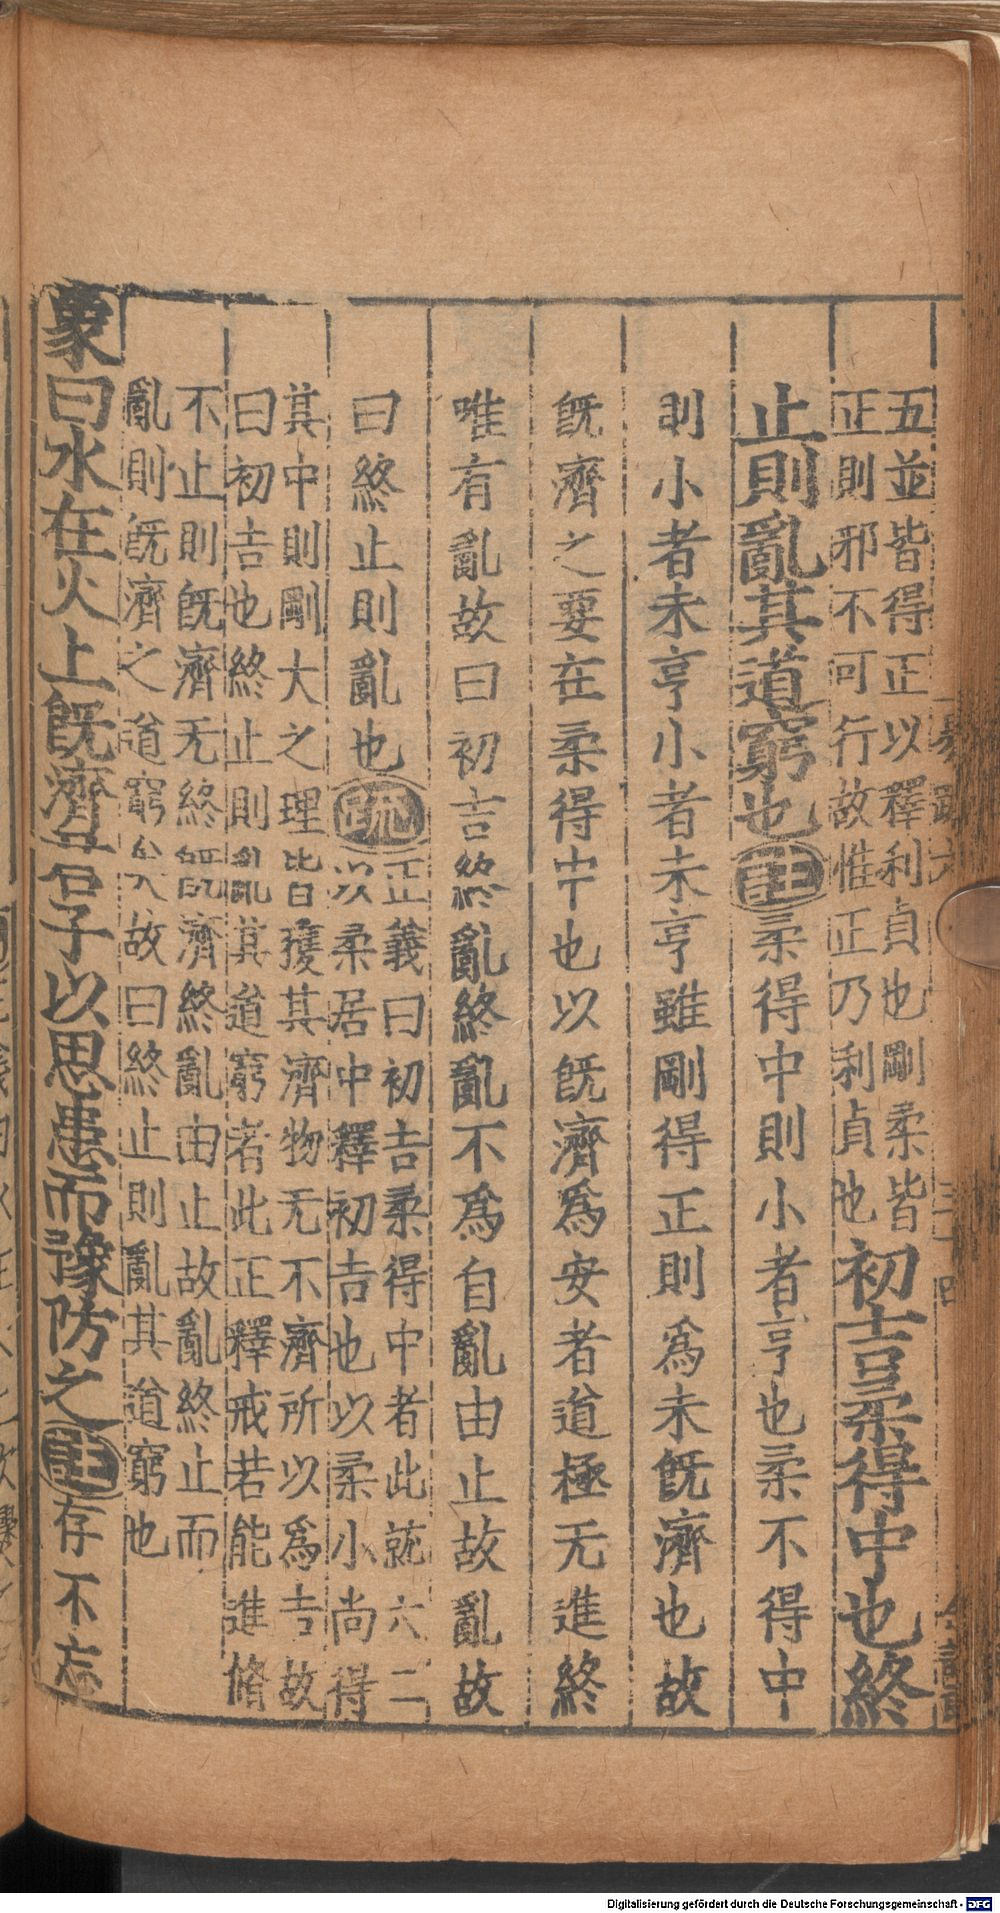 五並皆得正以釋利貞也剛柔皆
正則邪不可行故惟正乃利貞也
初吉柔得中也終
止則亂其道窮也註柔得中則小者亨也柔不得中
則小者未亨小者未亨雖剛得正則爲未旣濟也故
旣濟之要在柔得中也以旣濟爲安者道極无進終
唯有亂故曰初吉終亂終亂不爲自亂由止故亂故
曰終止則亂也疏
正義曰初吉柔得中者此就六二
以柔居中釋初吉也以柔小尚得
其中則剛大之理皆獲其濟物无不濟所以爲吉故
曰初吉也終止則亂其道窮者此正釋戒若能進脩
不止則旣濟无終旣濟終亂由止故亂終止而
亂則旣濟之道窮矣故曰終止則亂其道窮也
象曰水在火上旣濟君子以思患而豫防之註存不忘
Digitalisierung gefördert durch die Deutsche Forschungsgemeinschaft - DFG